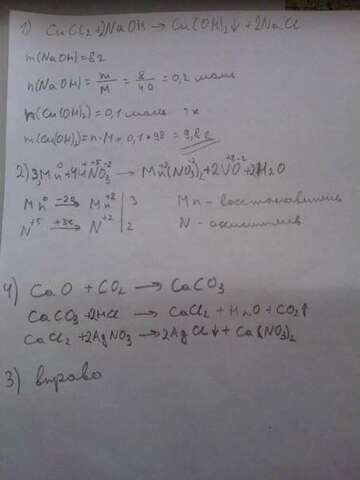 1) CuCl₂+2NaOH → Cu(OH)₂↓ +2NaCl
m(NaOH)=8г
n(NaOH) = m/M = 8/40 = 0,2 моль
n(Cu(OH)₂)=0,1 моль
m(Cu(OH)₂)=n·M = 0,1·98 = 9,8г
2) 3Mn⁰+ HN⁺⁵O₃⁻² → Mn⁺²(NO₃)₂+2N⁺²O⁻² + H₂O
Mn⁰ -2e→ Mn⁺² | 3 Mn - восстановитель
N⁺⁵ +3e→ N⁺² | 2 N - окислитель
4) CaO + CO₂ → CaCO₃
CaCO₃ +2HCl → CaCl₂ + H₂O + CO₂↑
CaCl₂ +2AgNO₃ → 2AgCl↓ + Ca(NO₃)₂
3) вправо